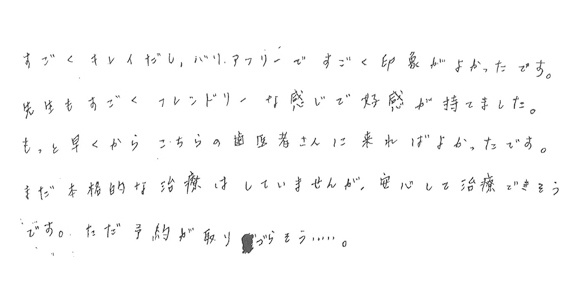 すごくキレイだし、バリアフリーですごく印象がよかったです。
先生もすごくフレンドリーな感じで好感が持てました。
もっと早くからこちらの歯医者さんに来ればよかったです。
まだ本格的な治療はしていませんが、安心して治療できそう
です。ただ予約が取りづらそう……。